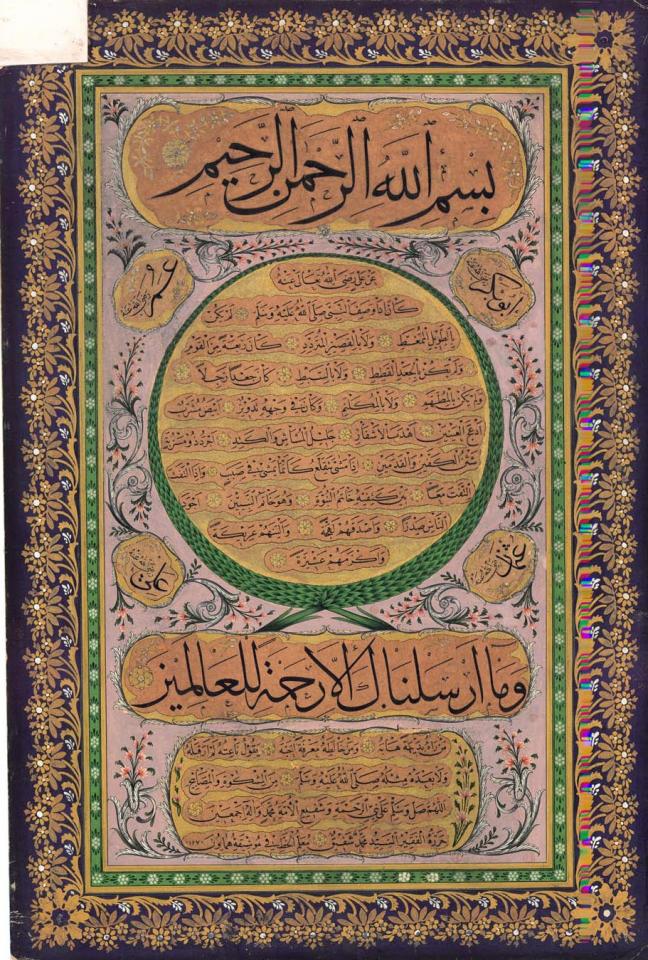 بسم الله الرحمن الرحيم
ابوبكر
عمر
عن علي رضى الله تعالى عنه
كان اذا وصف النبي صلى الله عليه وسلم قال لم يكن
بالطويل الممغط ولا بالقصير المتردد كان ربعة من القوم
ولم يكن بالجعد القطط ولا بالسبط كان جعدا رجلا
ولم يكن بالمطهم ولا بالمكلثم وكان في وجهه تدوير ابيض مشرب
ادعج العينين اهدب الاشفار جليل المشاش والكتد اجرد ذو مسربة
شثن الكفين والقدمين اذا مشى تقلع كانما يمشي في صبب واذا التفت
التفت معا بين كتفيه خاتم النبوة وهو خاتم النبيين اجود
الناس صدرا واصدقهم لهجة والينهم عريكة
واكرمهم عشيرة
عثمان
علي
وما ارسلناك الا رحمة للعالمين
من راه بديهة هابه ومن خالطه معرفة احبه يقول ناعته لم ار قبله
ولا بعده مثله صلى الله عليه وسلم
اللهم صل وسلم على نبي الرحمة وشفيع الامة محمد واله اجمعين
حرره الفقير السيد محمد شفيق معلم الخط في موسيقه همايون ١٢٧٠